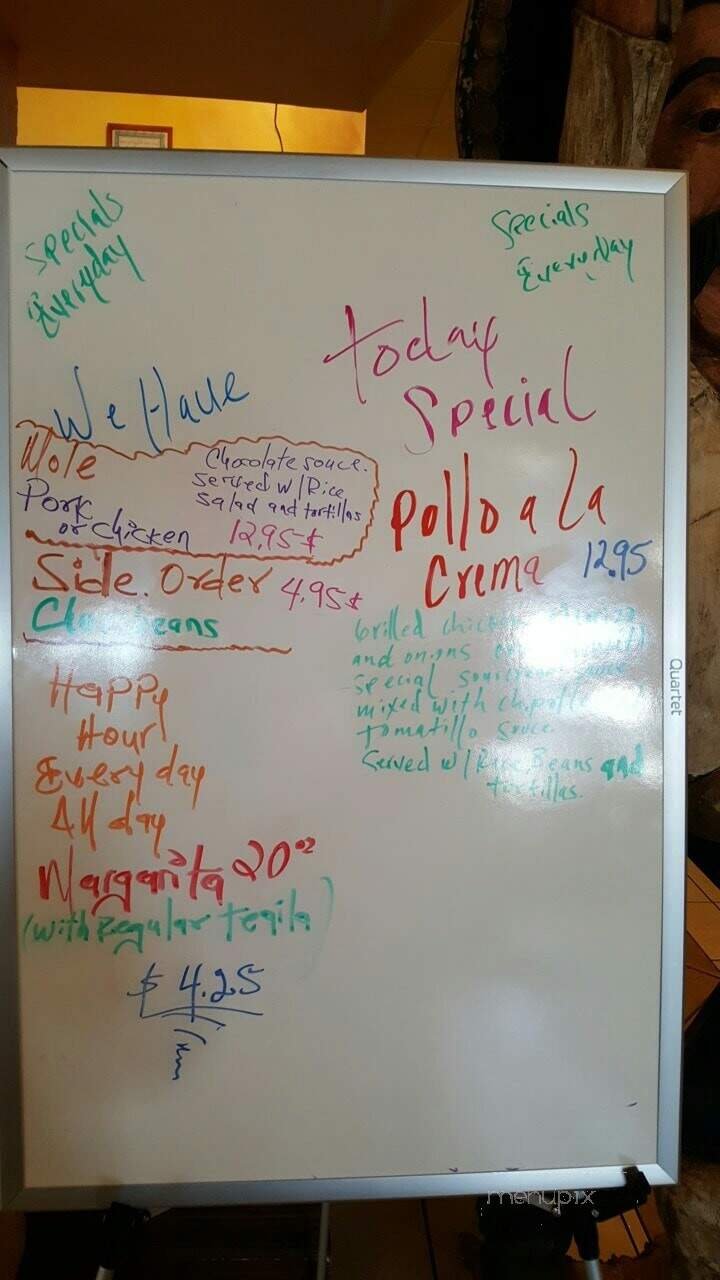 Specials
Everyday
Specials
Everyday
We Have
Mole
Pork
or chicken
Chocolate souce.
served w/Rice
salad and tortillas
12,95$
Side. Order 4.95$
beans
Happy
Hour
Every day
All day
Margarita 20oz
(with Regular Teqila)
$ 4.25
today
Special
Pollo a La
Crema 12.95
Grilled
and onions
special
mixed with chipotle
tomatillo souce
Served w/Rice, Beans and
tortillas.
Quartet
menupix